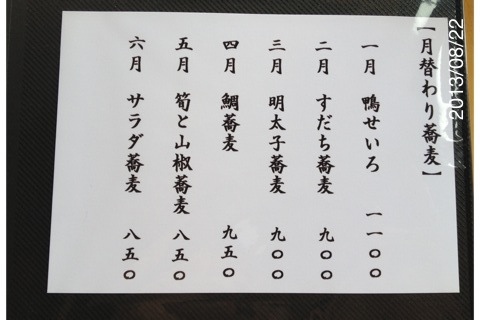 【月替わり蕎麦】
一月 鴨せいろ 一一〇〇
二月 すだち蕎麦 九〇〇
三月 明太子蕎麦 九〇〇
四月 鯛蕎麦 九五〇
五月 筍と山椒蕎麦 八五〇
六月 サラダ蕎麦 八五〇
2013/08/22